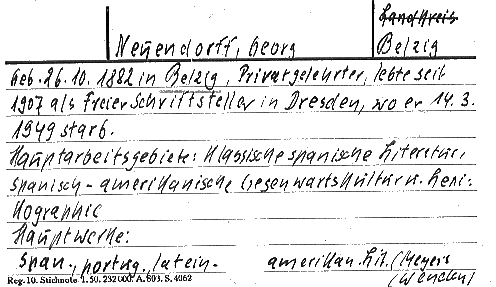 Landkreis
Neuendorff, Georg Belzig
Geb. 26.10.1882 in Belzig, Privatgelehrter, lebte seit
1907 als freier Schriftsteller in Dresden, wo er 14.3.
1949 starb.
Hauptarbeitsgebiete: Klassische spanische Literatur,
spanisch-amerikanische Gegenwartskultur u. Lexi-
kographie
Hauptwerke:
Span., portug., latein- amerikan. Lit. (Meyers
Reg. 10. Stichnote 1. 50. 232 000. A. 803. S. 4062